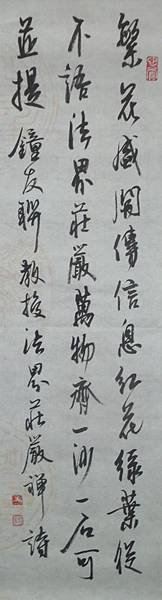 繁花盛開傳信息紅花綠葉從
不語法界莊嚴萬物齊一沙一石可
並提 鐘友聯教授法界莊嚴禪詩